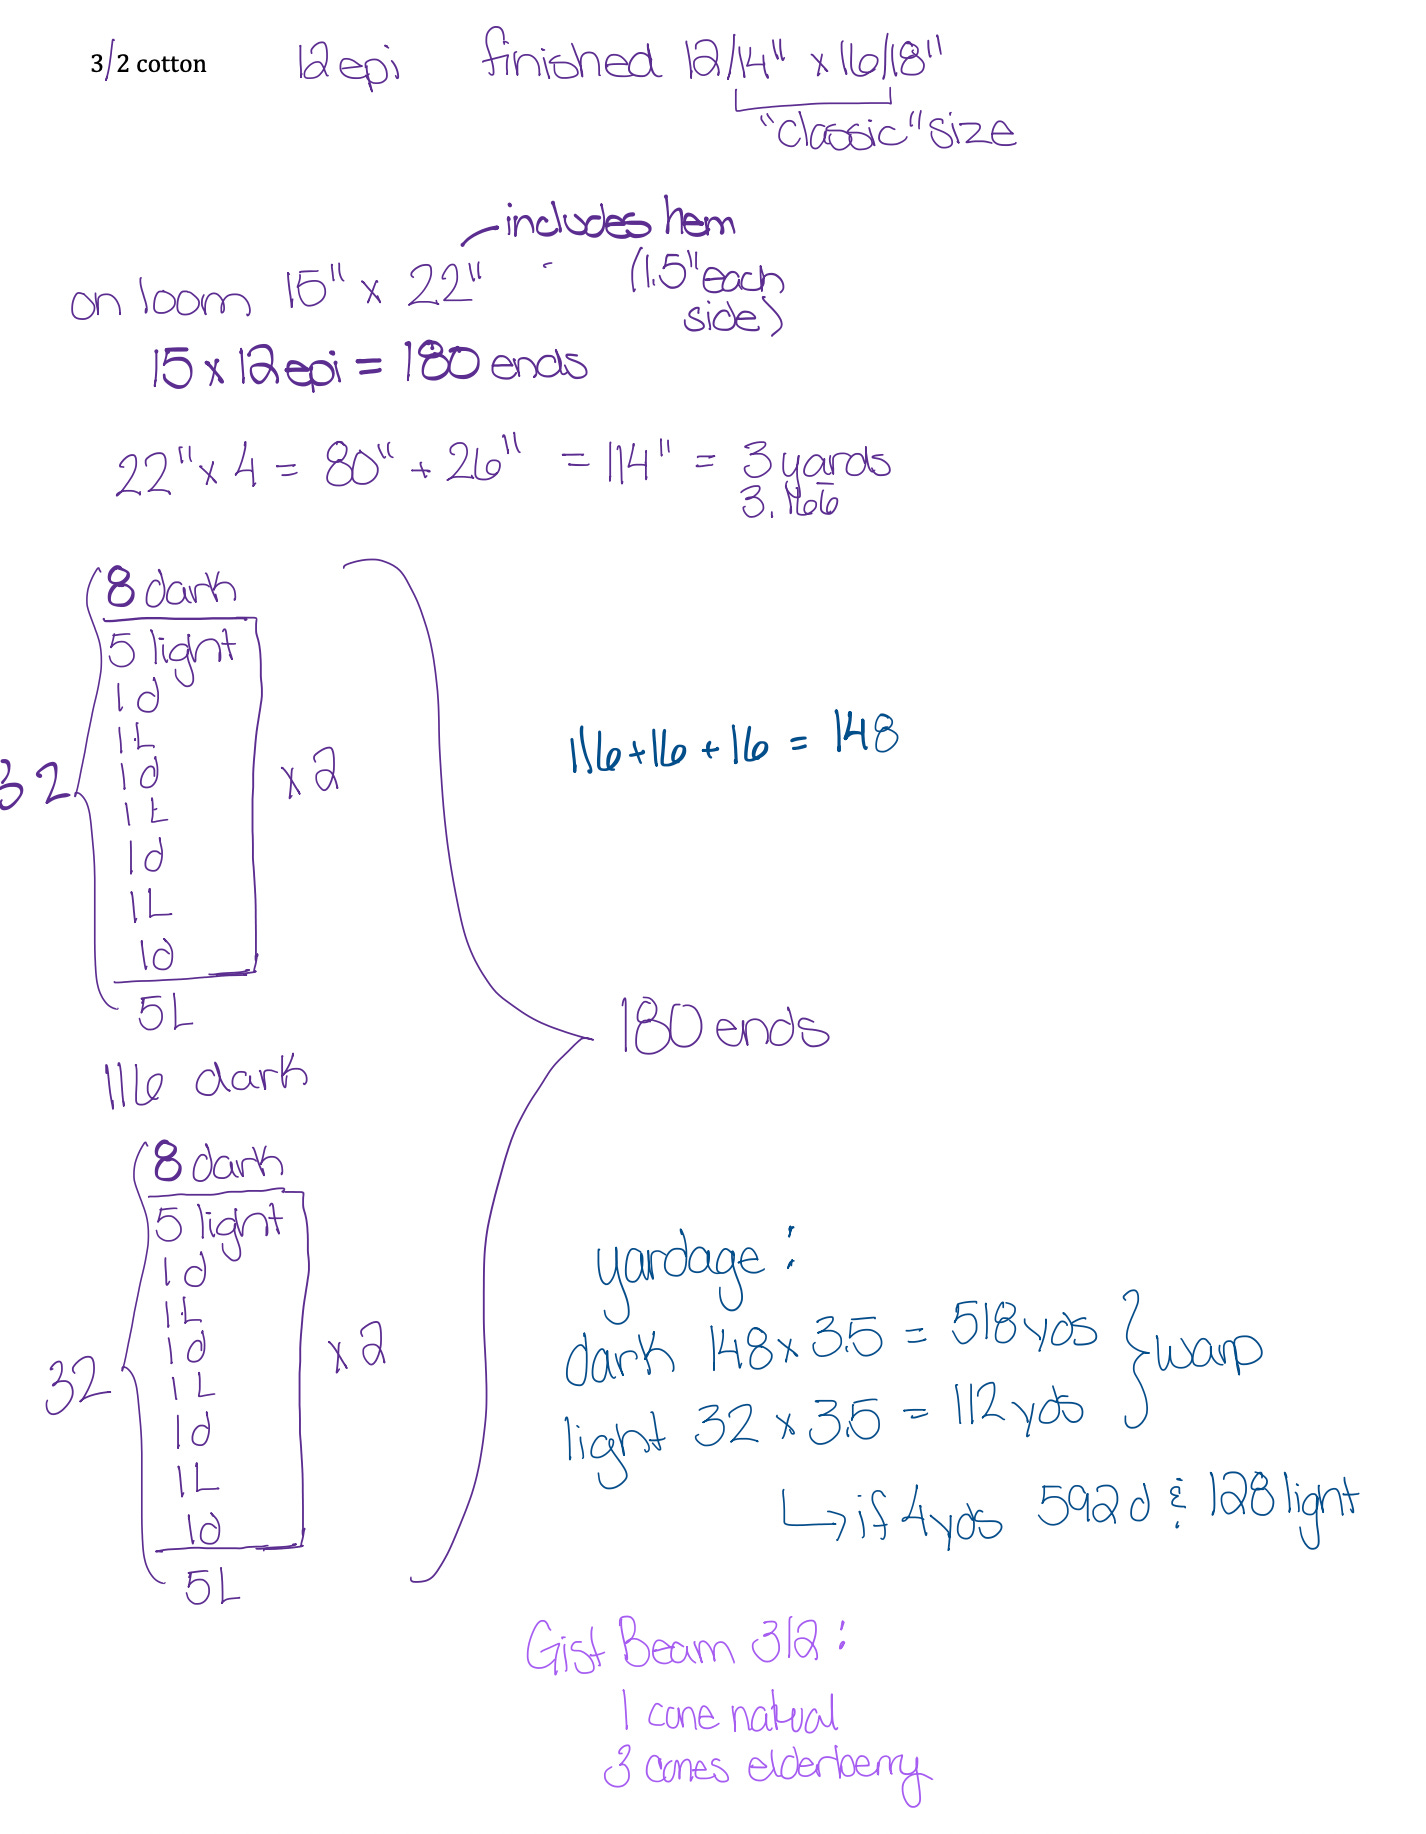 3/2 cotton 12 epi finished 12/14" x 16/18"
"classic" size
includes hem
(1.5" each
side)
on loom 15" x 22"
15 x 12 epi = 180 ends
22" x 4 = 80" + 26" = 114" = 3 yards
3.166
8 dark
5 light
1d
1L
1d
1L
1d
1L
1d
5L
32
x 2
116 + 16 + 16 = 148
180 ends
116 dark
8 dark
5 light
1d
1L
1d
1L
1d
1L
1d
5L
32
x 2
yardage:
dark 148 x 3.5 = 518 yds
light 32 x 3.5 = 112 yds
warp
↳ if 4 yds 592 d & 128 light
Gist Beam 3/2:
1 cone natual
3 cones elderberry